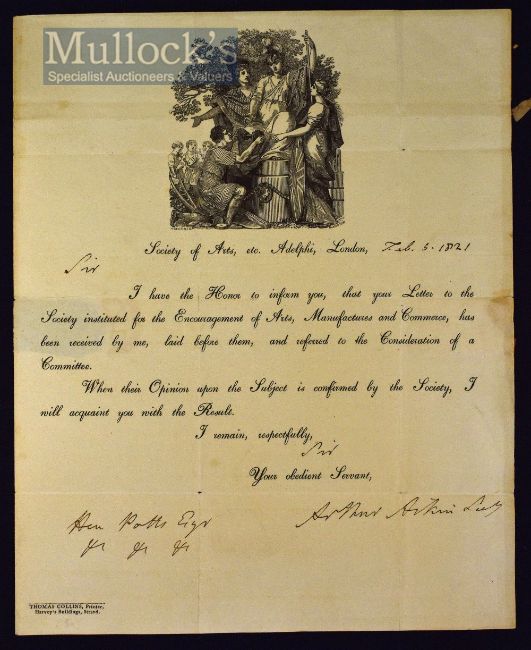 Mullock's
Specialist Auctioneers & Valuers
Society of Arts, etc. Adelphi, London, Feb. 5. 1821
Sir
I have the Honor to inform you, that your Letter to the
Society instituted for the Encouragement of Arts, Manufactures and Commerce, has
been received by me, laid before them, and referred to the Consideration of a
Committee.
When their Opinion upon the Subject is confirmed by the Society, I
will acquaint you with the Result.
I remain, respectfully,
Sir
Your obedient Servant,
Arthur Aikin Secy
Hen Potts Esqr
&c &c &c
THOMAS COLLINS, Printer,
Harvey's Buildings, Strand.